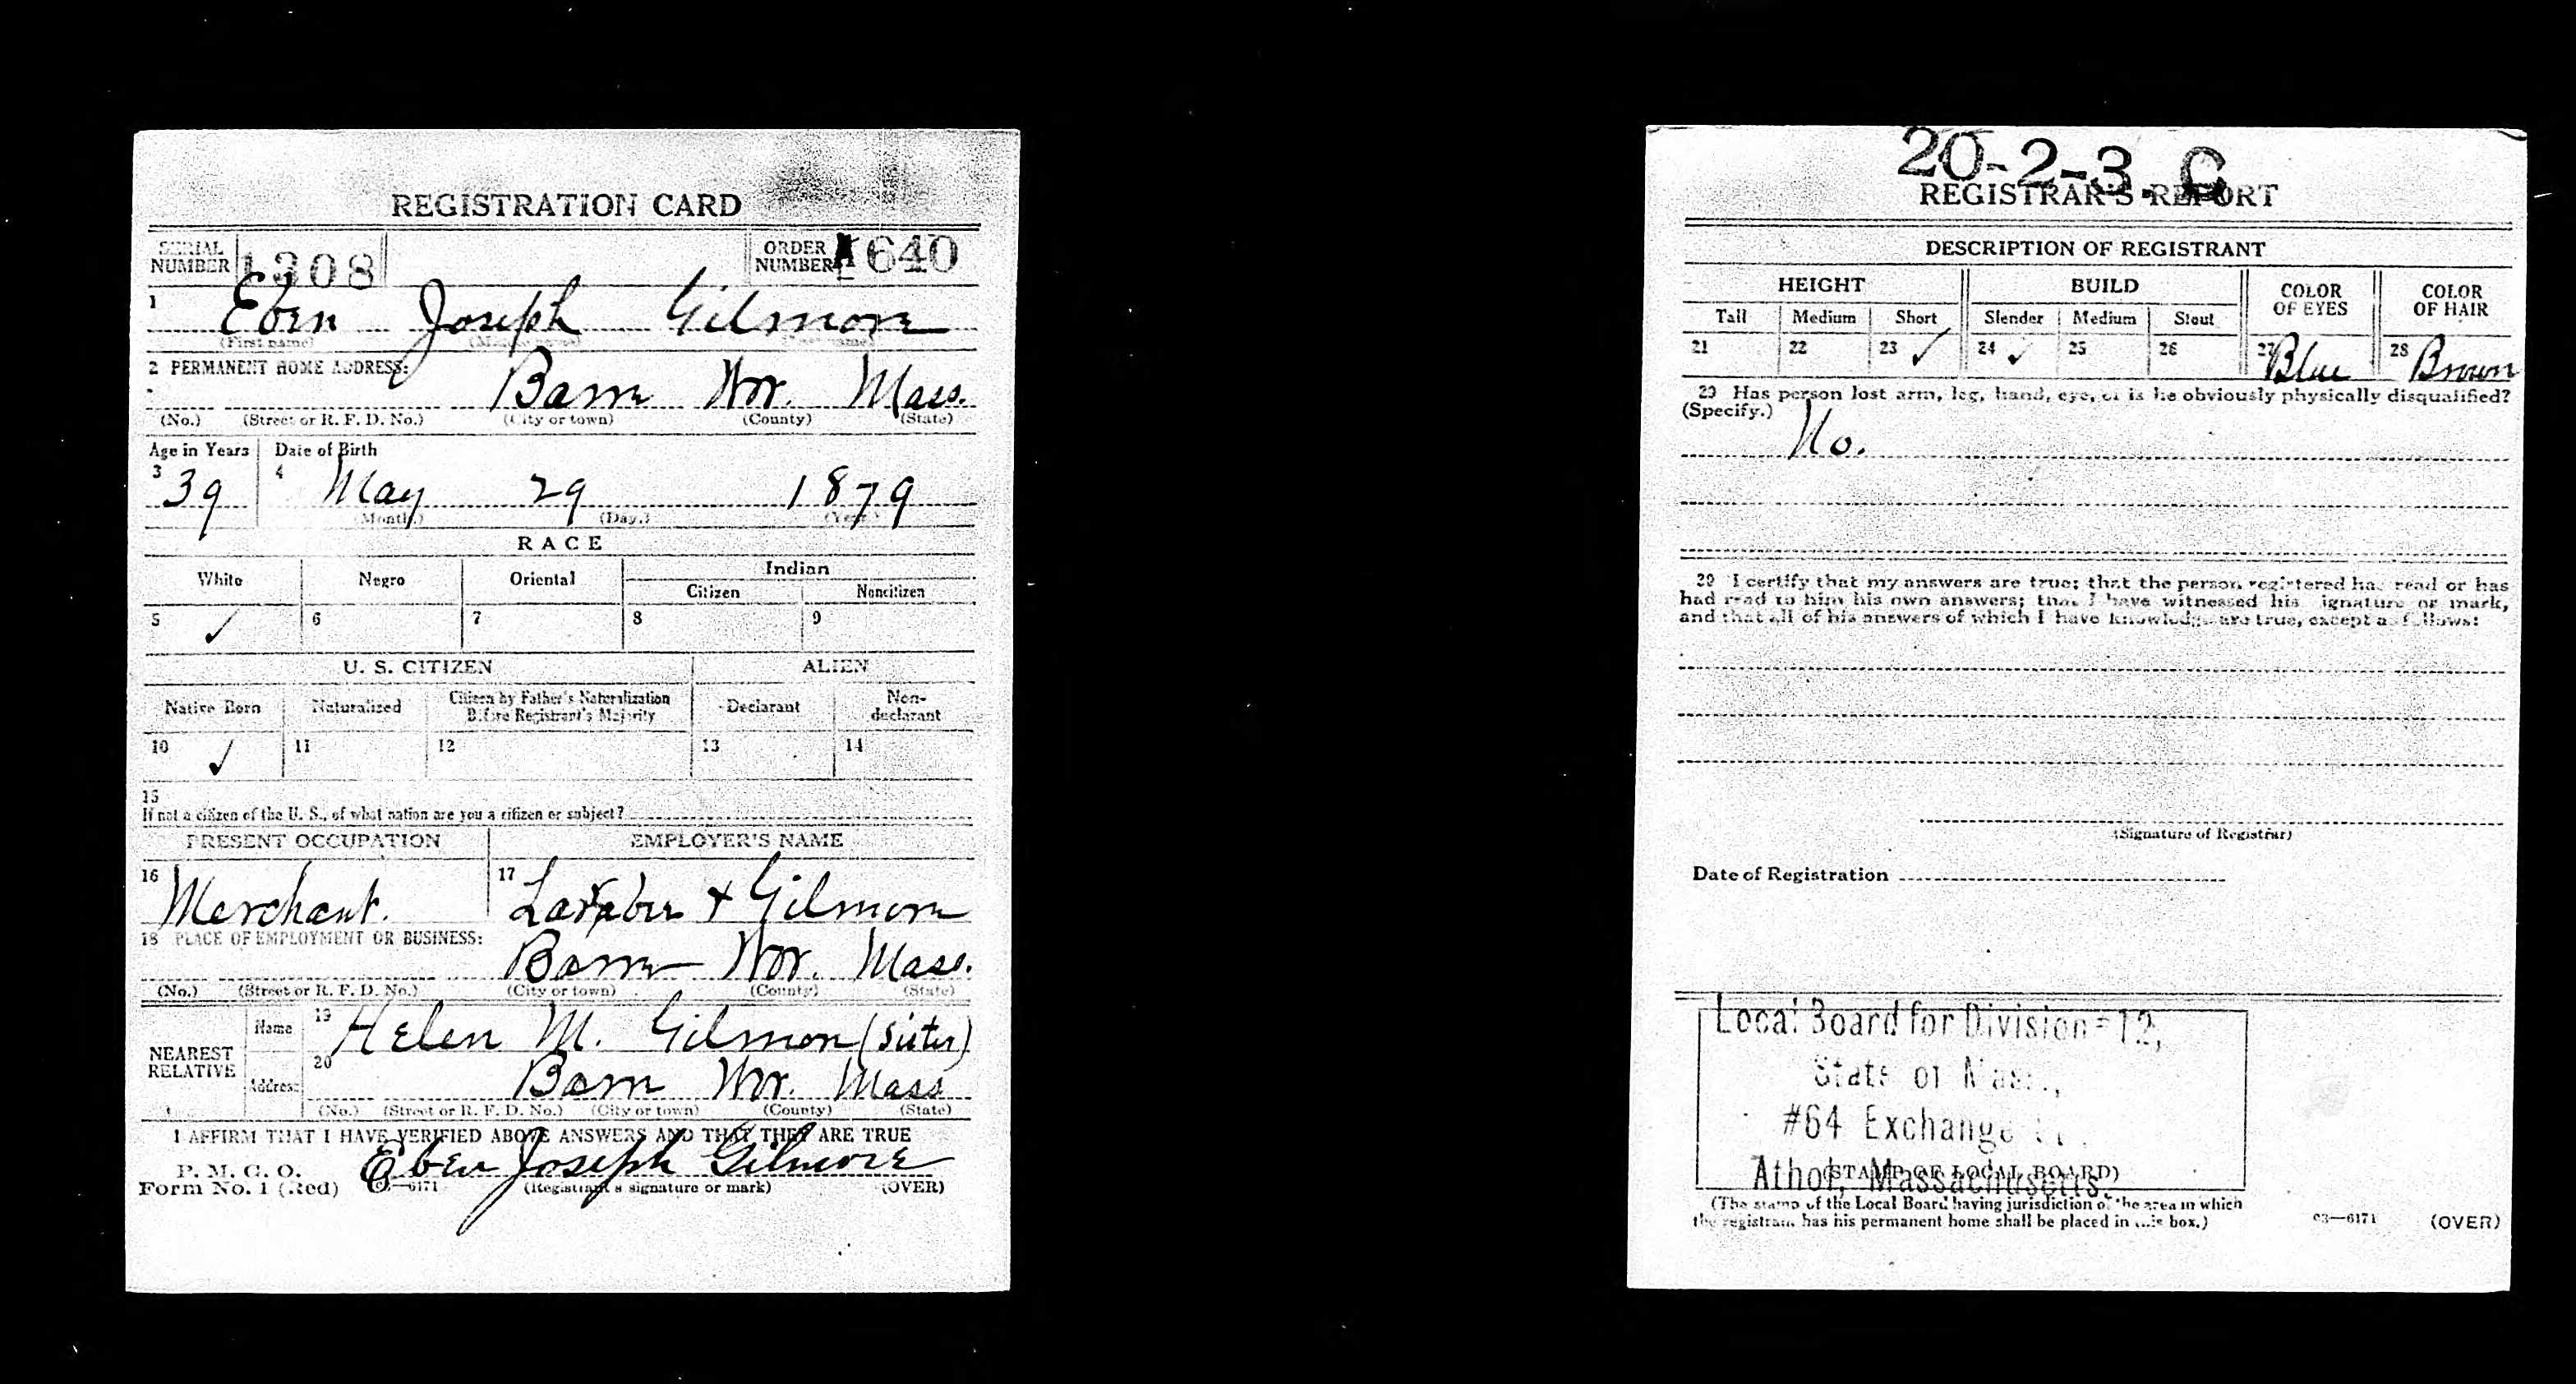 REGISTRATION CARD
SERIAL NUMBER 1308 ORDER NUMBER A 640
1 Eben Joseph Gilmore
(First name) (Middle name) (Last name)
2 PERMANENT HOME ADDRESS:
Barre Wor. Mass.
(No.) (Street or R. F. D. No.) (City or town) (County) (State)
Age in Years Date of Birth
3 39 4 May 29 1879
(Month.) (Day.) (Year.)
RACE
White Negro Oriental Indian
Citizen Noncitizen
5 ✓ 6 7 8 9
U. S. CITIZEN ALIEN
Native Born Naturalized Citizen by Father's Naturalization Before Registrant's Majority Declarant Non-declarant
10 ✓ 11 12 13 14
15
If not a citizen of the U. S., of what nation are you a citizen or subject?
PRESENT OCCUPATION EMPLOYER'S NAME
16 Merchant. 17 Larabee + Gilmore
18 PLACE OF EMPLOYMENT OR BUSINESS:
Barre Wor. Mass.
(No.) (Street or R. F. D. No.) (City or town) (County) (State)
NEAREST RELATIVE
Name 19 Helen M. Gilmore (sister)
Address 20 Barre Wor. Mass
(No.) (Street or R. F. D. No.) (City or town) (County) (State)
I AFFIRM THAT I HAVE VERIFIED ABOVE ANSWERS AND THAT THEY ARE TRUE
P. M. G. O.
Form No. 1 (Red) Eben Joseph Gilmore
03—6171 (Registrant's signature or mark) (OVER)
20-2-3. C
REGISTRAR'S REPORT
DESCRIPTION OF REGISTRANT
HEIGHT BUILD COLOR OF EYES COLOR OF HAIR
Tall Medium Short Slender Medium Stout
21 22 23 ✓ 24 ✓ 25 26 27 Blue 28 Brown
29 Has person lost arm, leg, hand, eye, or is he obviously physically disqualified?
(Specify.)
No.
30 I certify that my answers are true; that the person registered has read or has
had read to him his own answers; that I have witnessed his signature or mark,
and that all of his answers of which I have knowledge are true, except as follows:
(Signature of Registrar)
Date of Registration
Local Board for Division #12,
State of Mass.,
#64 Exchange St.
Athol, Massachusetts.
(STAMP OF LOCAL BOARD)
(The stamp of the Local Board having jurisdiction of the area in which
the registrant has his permanent home shall be placed in this box.)
03—6171 (OVER)